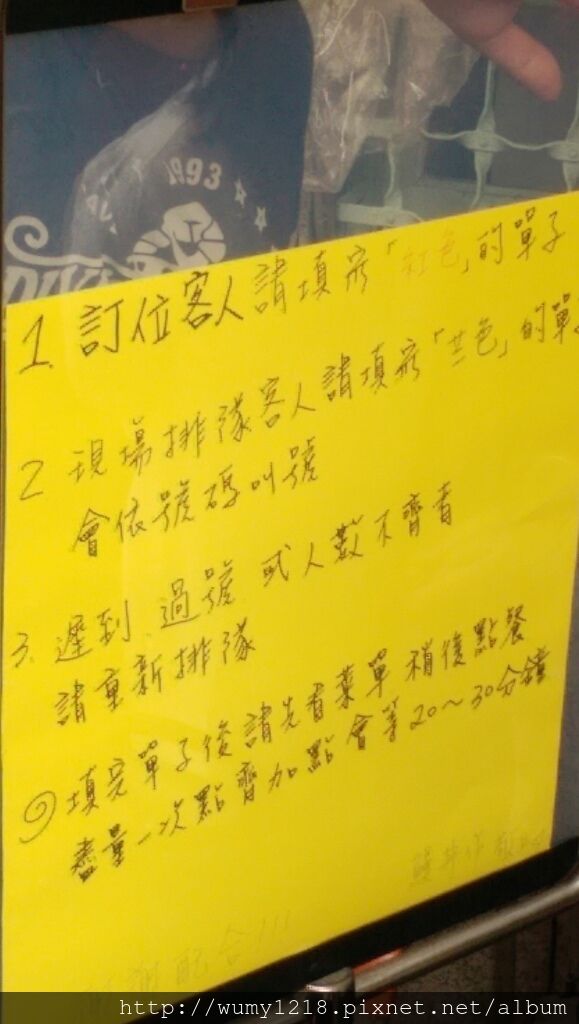 1993
1. 訂位客人請填寫「紅色」的單子
2 現場排隊客人請填寫「三色」的單
會依號碼叫號
3. 遲到 過號 或人數不齊者
請重新排隊
填完單子後請先看菜單 稍後點餐
盡量一次點齊加點會等20~30分鐘
謝配合!!!
http://wumy1218.pixnet.net/album